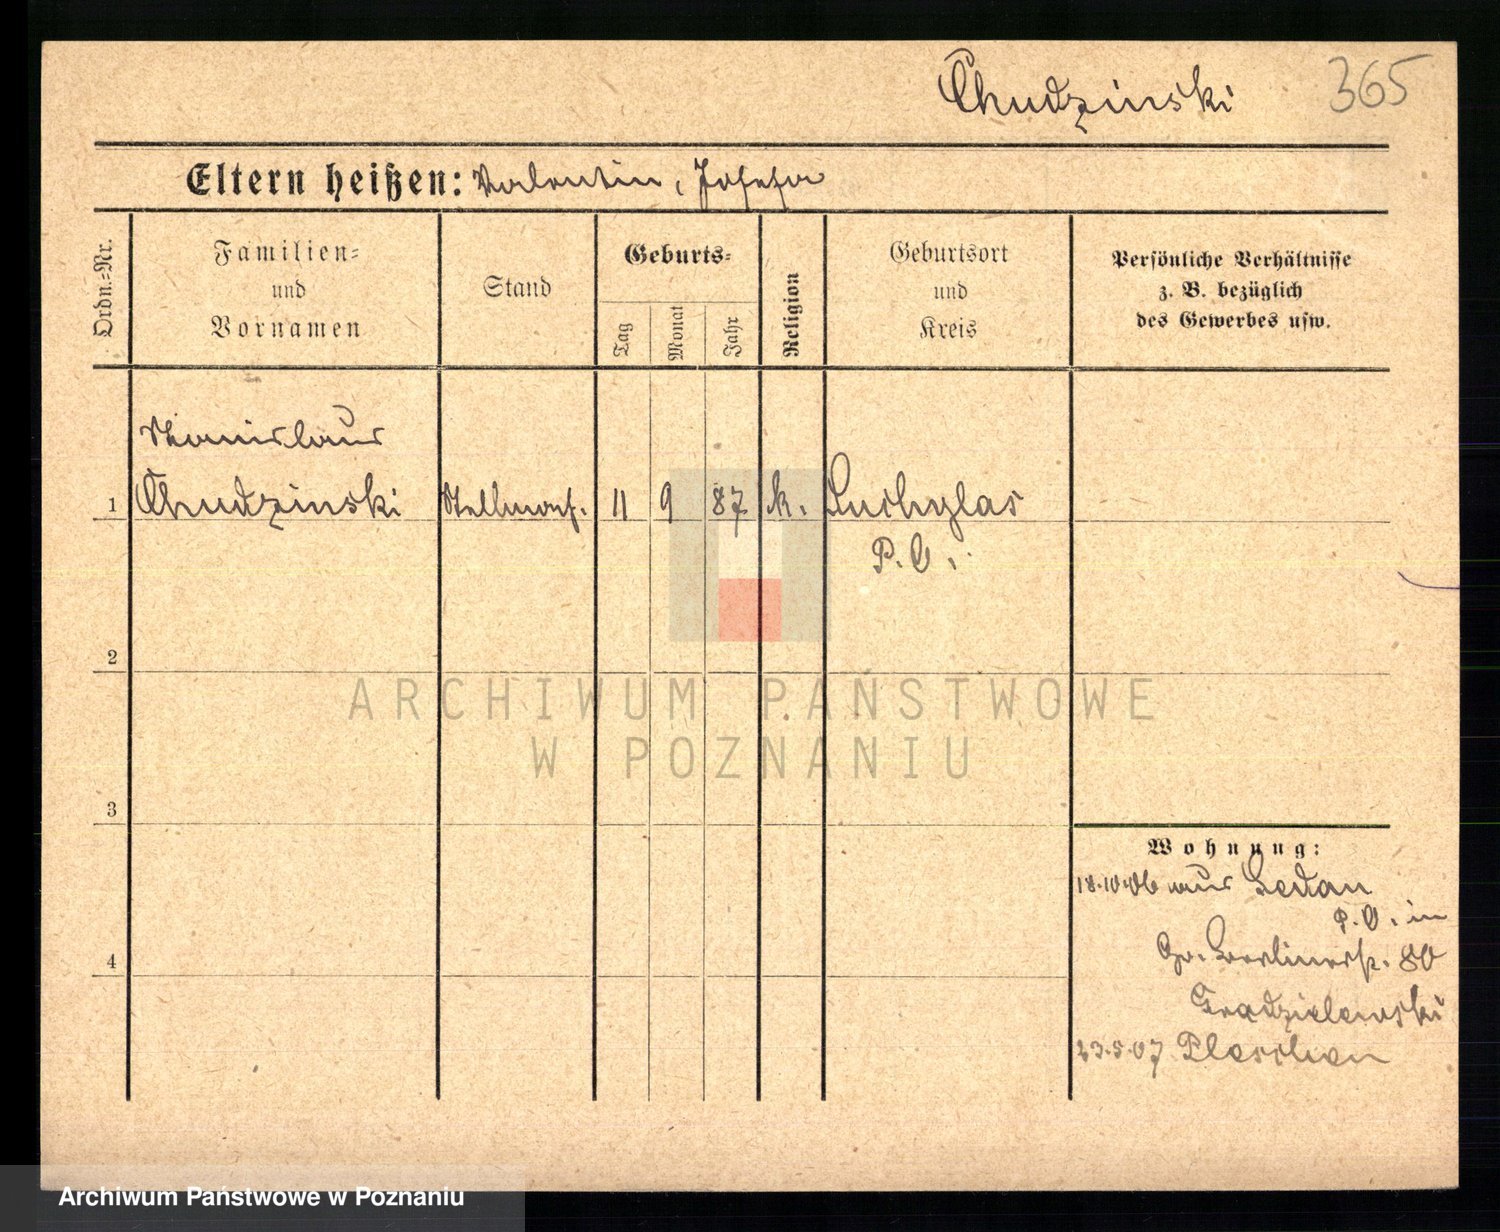 Chudzinski
365
Eltern heißen: Valentin, Josefa
Ordn.-Nr.
Familien-
und
Vornamen
Stand
Geburts-
Tag
Monat
Jahr
Religion
Geburtsort
und
Kreis
Persönliche Verhältnisse
z. B. bezüglich
des Gewerbes usw.
Stanislaus
1 Chudzinski Stellmach. 11 9 87 k. Suchylas
P. O.
2
ARCHIWUM PAŃSTWOWE
W POZNANIU
3
Wohnung:
18.10.06 aus Sedan
P. O. in
Gr. Berlinerstr. 80
Gradzielewski
23.5.07 Pleschen
4
Archiwum Państwowe w Poznaniu